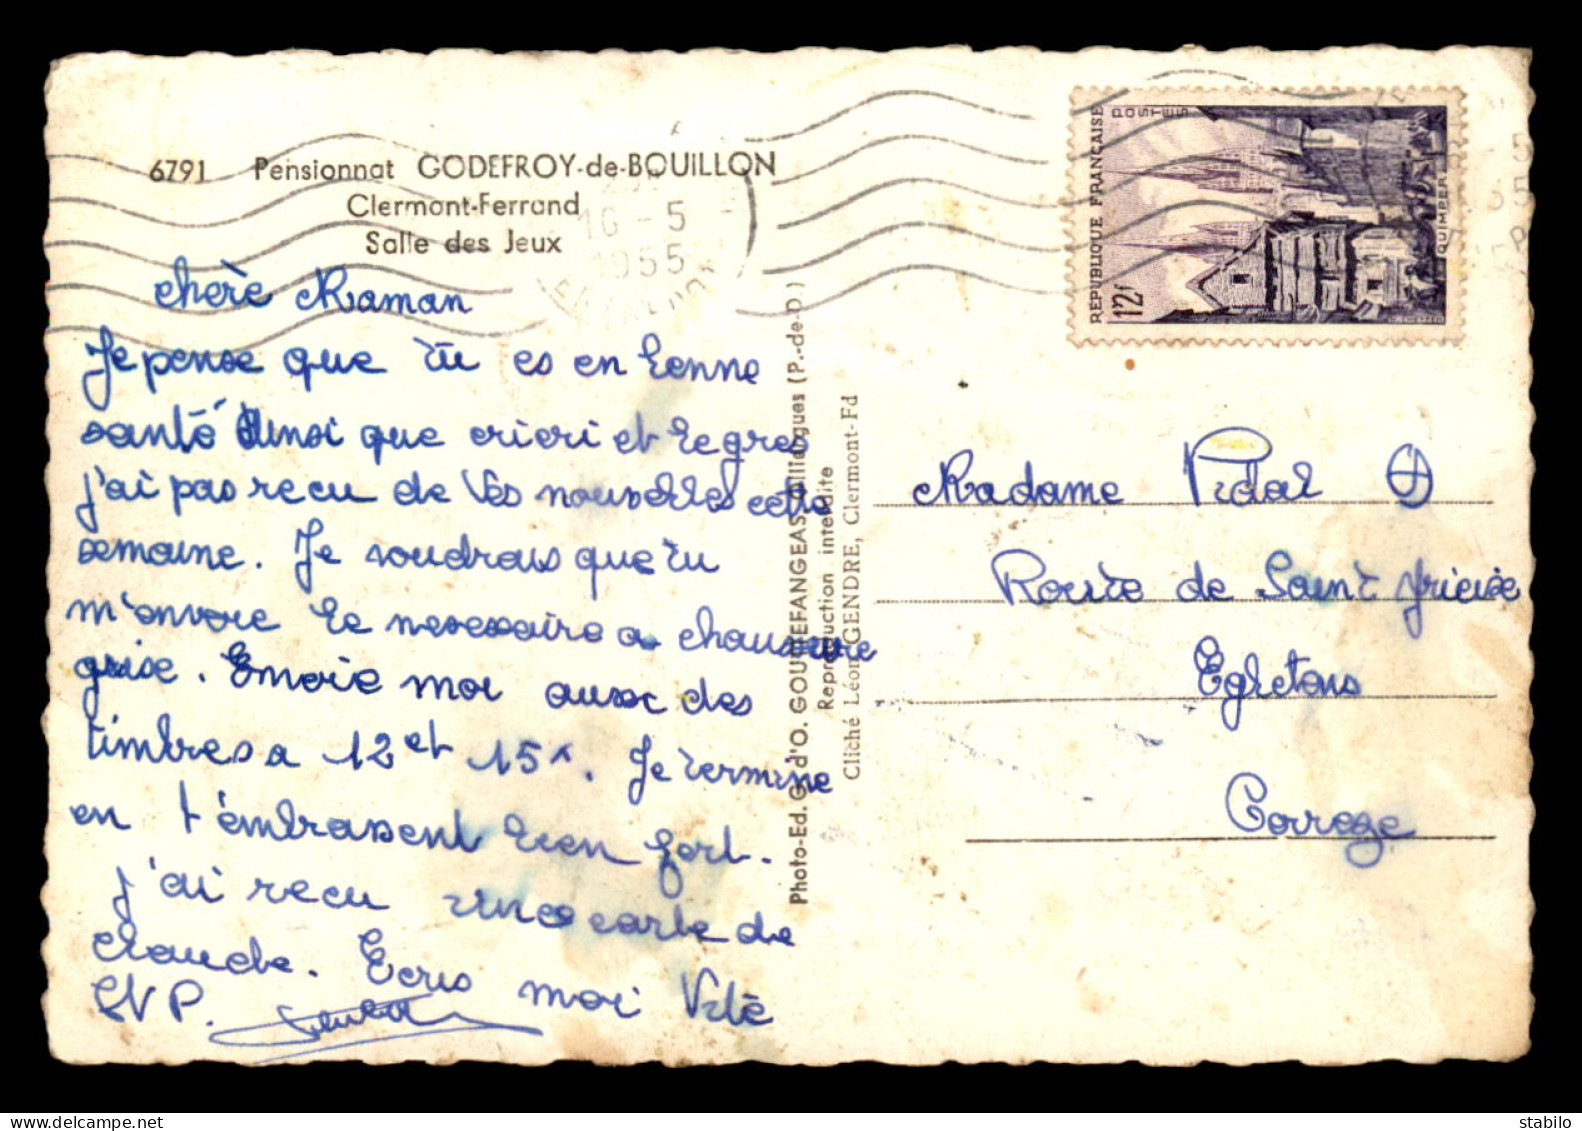 6791 Pensionnat GODEFROY-de-BOUILLON
Clermont-Ferrand
Salle des Jeux
16 - 5
1955
REPUBLIQUE FRANÇAISE
POSTES
12f
QUIMPER
chère Maman
Je pense que tu es en bonne
santé ainsi que cricri et
j'ai pas recu de Vos nouvelles cette
semaine. Je voudrais que tu
m'envoie le necessaire a chaussure
grise. Envoie moi aussi des
timbres a 12 et 15f. Je termine
en t'embrassent bien fort.
J'ai recu une carte de
claude. Ecris moi Vite
SVP.
Photo-Ed. G. d'O. GOUTTEFANGEAS, Ollier­gues (P.-de-D.)
Reproduction interdite
Cliché Léon GENDRE, Clermont-Fd
Madame Vidal
Route de Saint
Egletons
Correze
www.delcampe.net
stabilo